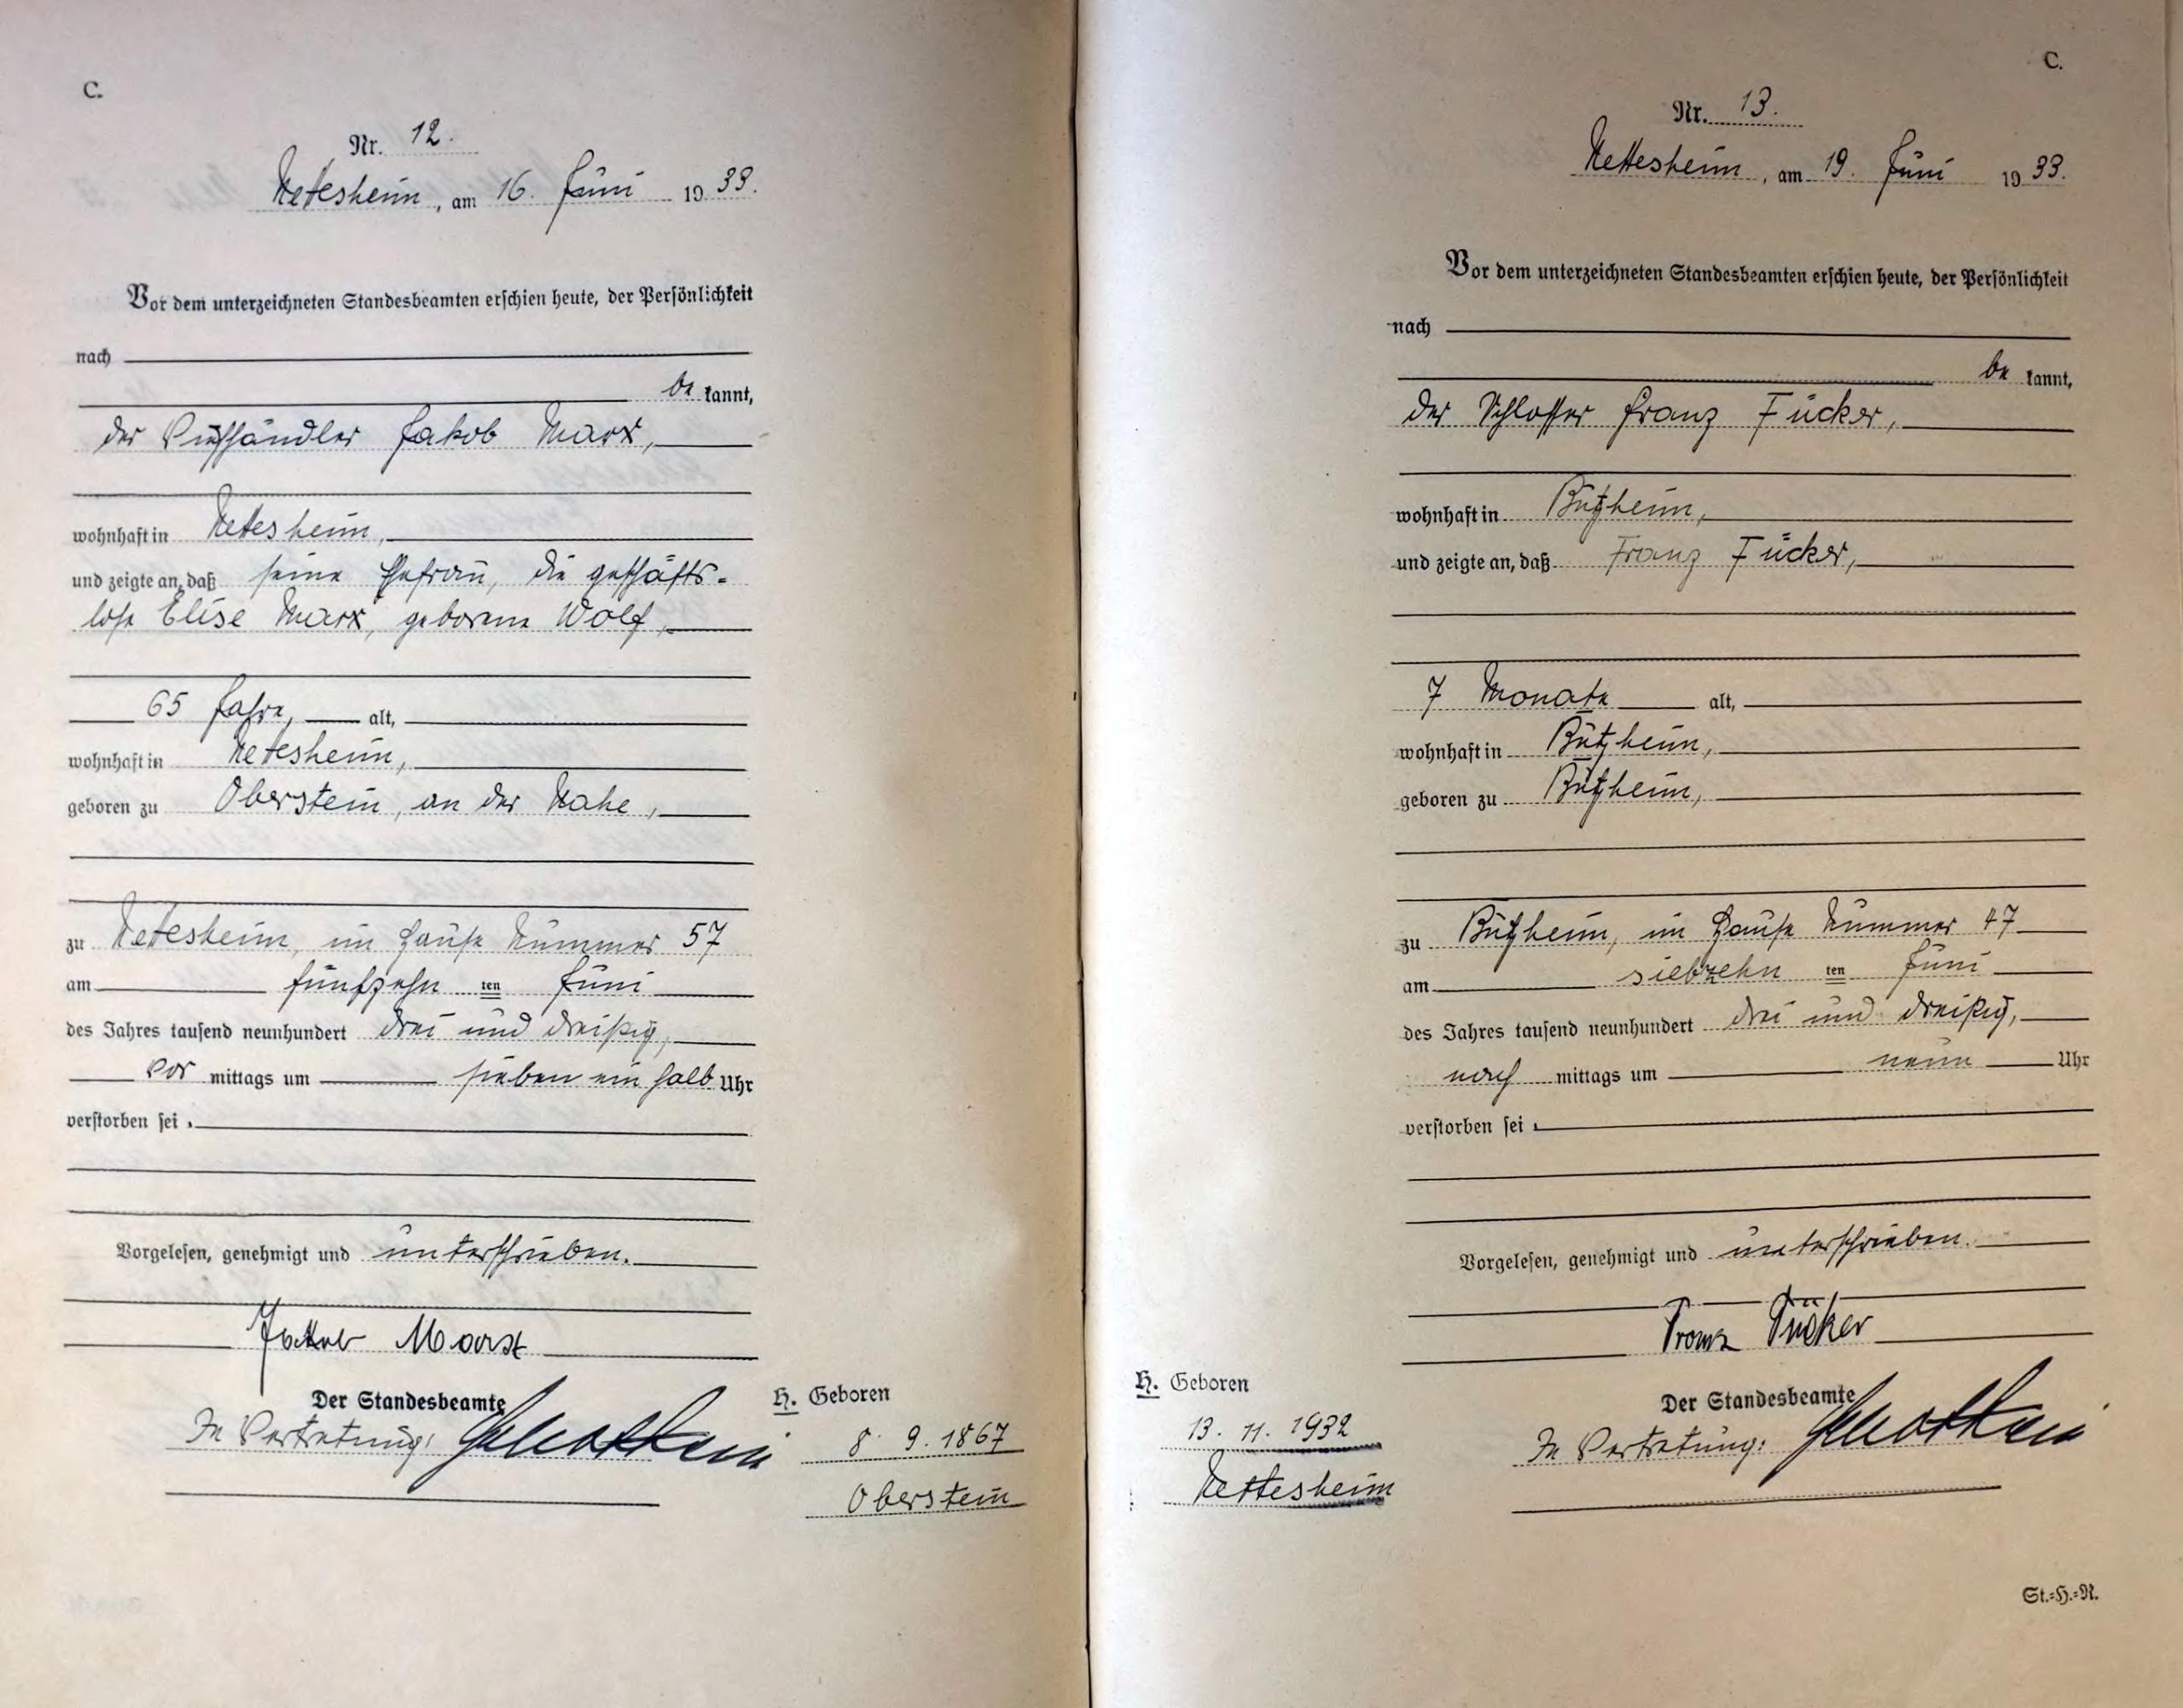 C.
Nr. 12.
Nettesheim, am 16. Juni 1933.
Vor dem unterzeichneten Standesbeamten erschien heute, der Persönlichkeit
nach
be kannt,
der Viehhändler Jakob Marx,
wohnhaft in Nettesheim,
und zeigte an, daß seine Ehefrau, die geschäfts-
lose Elise Marx, geborene Wolf,
65 Jahre, alt,
wohnhaft in Nettesheim,
geboren zu Oberstein, an der Nahe,
zu Nettesheim, im Hause Nummer 57
am fünfzehn ten Juni
des Jahres tausend neunhundert drei und dreißig,
vor mittags um sieben ein halb Uhr
verstorben sei.
Vorgelesen, genehmigt und unterschrieben.
Jakob Marx
Der Standesbeamte
In Vertretung:
H. Geboren
8. 9. 1867
Oberstein
C.
Nr. 13.
Nettesheim, am 19. Juni 1933.
Vor dem unterzeichneten Standesbeamten erschien heute, der Persönlichkeit
nach
be kannt,
der Schlosser Franz Fücker,
wohnhaft in Bützheim,
und zeigte an, daß Franz Fücker,
7 Monate alt,
wohnhaft in Bützheim,
geboren zu Bützheim,
zu Bützheim, im Hause Nummer 47
am siebzehn ten Juni
des Jahres tausend neunhundert drei und dreißig,
nach mittags um neun Uhr
verstorben sei.
Vorgelesen, genehmigt und unterschrieben.
Franz Fücker
Der Standesbeamte
In Vertretung:
H. Geboren
13. 11. 1932
Nettesheim
St.=H.=R.